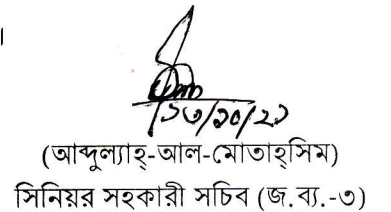 ।
১৩/১০/২১
(আব্দুল্যাহ্-আল-মোতাহ্সিম)
সিনিয়র সহকারী সচিব (জ.ব্য.-৩)